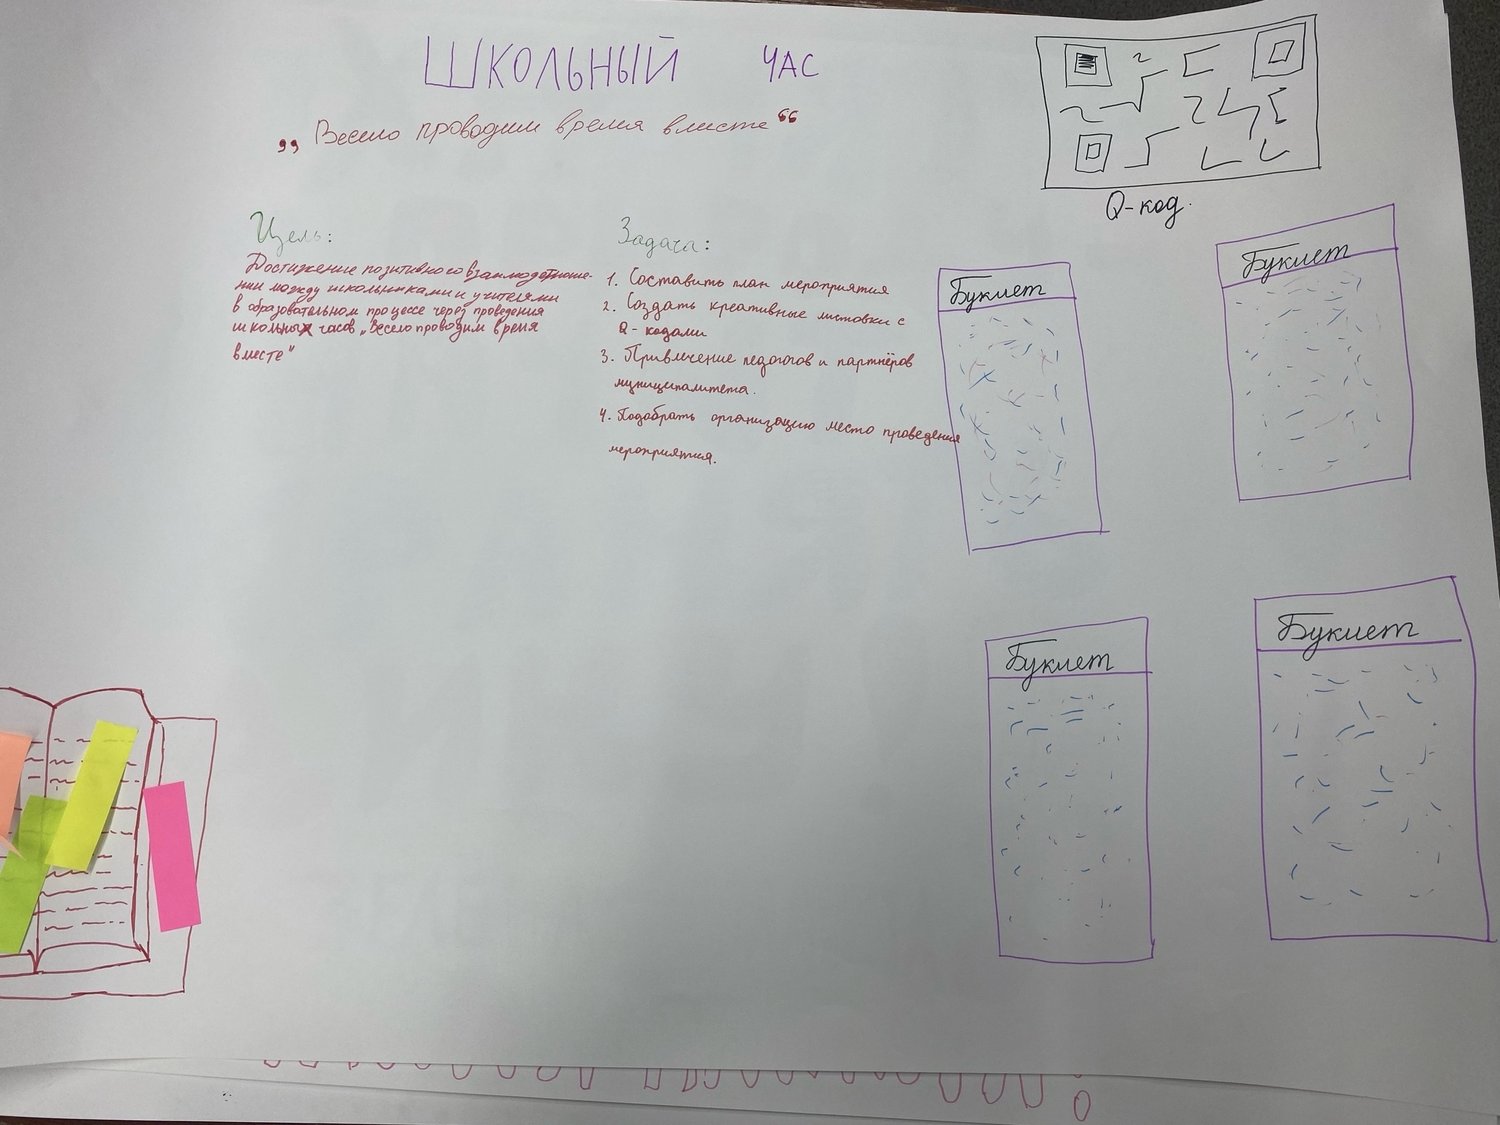 ШКОЛЬНЫЙ ЧАС
„ Весело проводим время вместе “
Q-код.
Цель:
Достижение позитивного взаимодотноше-
нии между школьниками и учителями
в образовательном процессе через проведения
школьных часов „Весело проводим время
вместе"
Задача:
1. Составить план мероприятия
2. Создать креативные листовки с
Q-кодами
3. Привлечение педогогов и партнёров
муниципалитета.
4. Подобрать организацию место проведения
мероприятия.
Буклет
Буклет
Буклет
Буклет